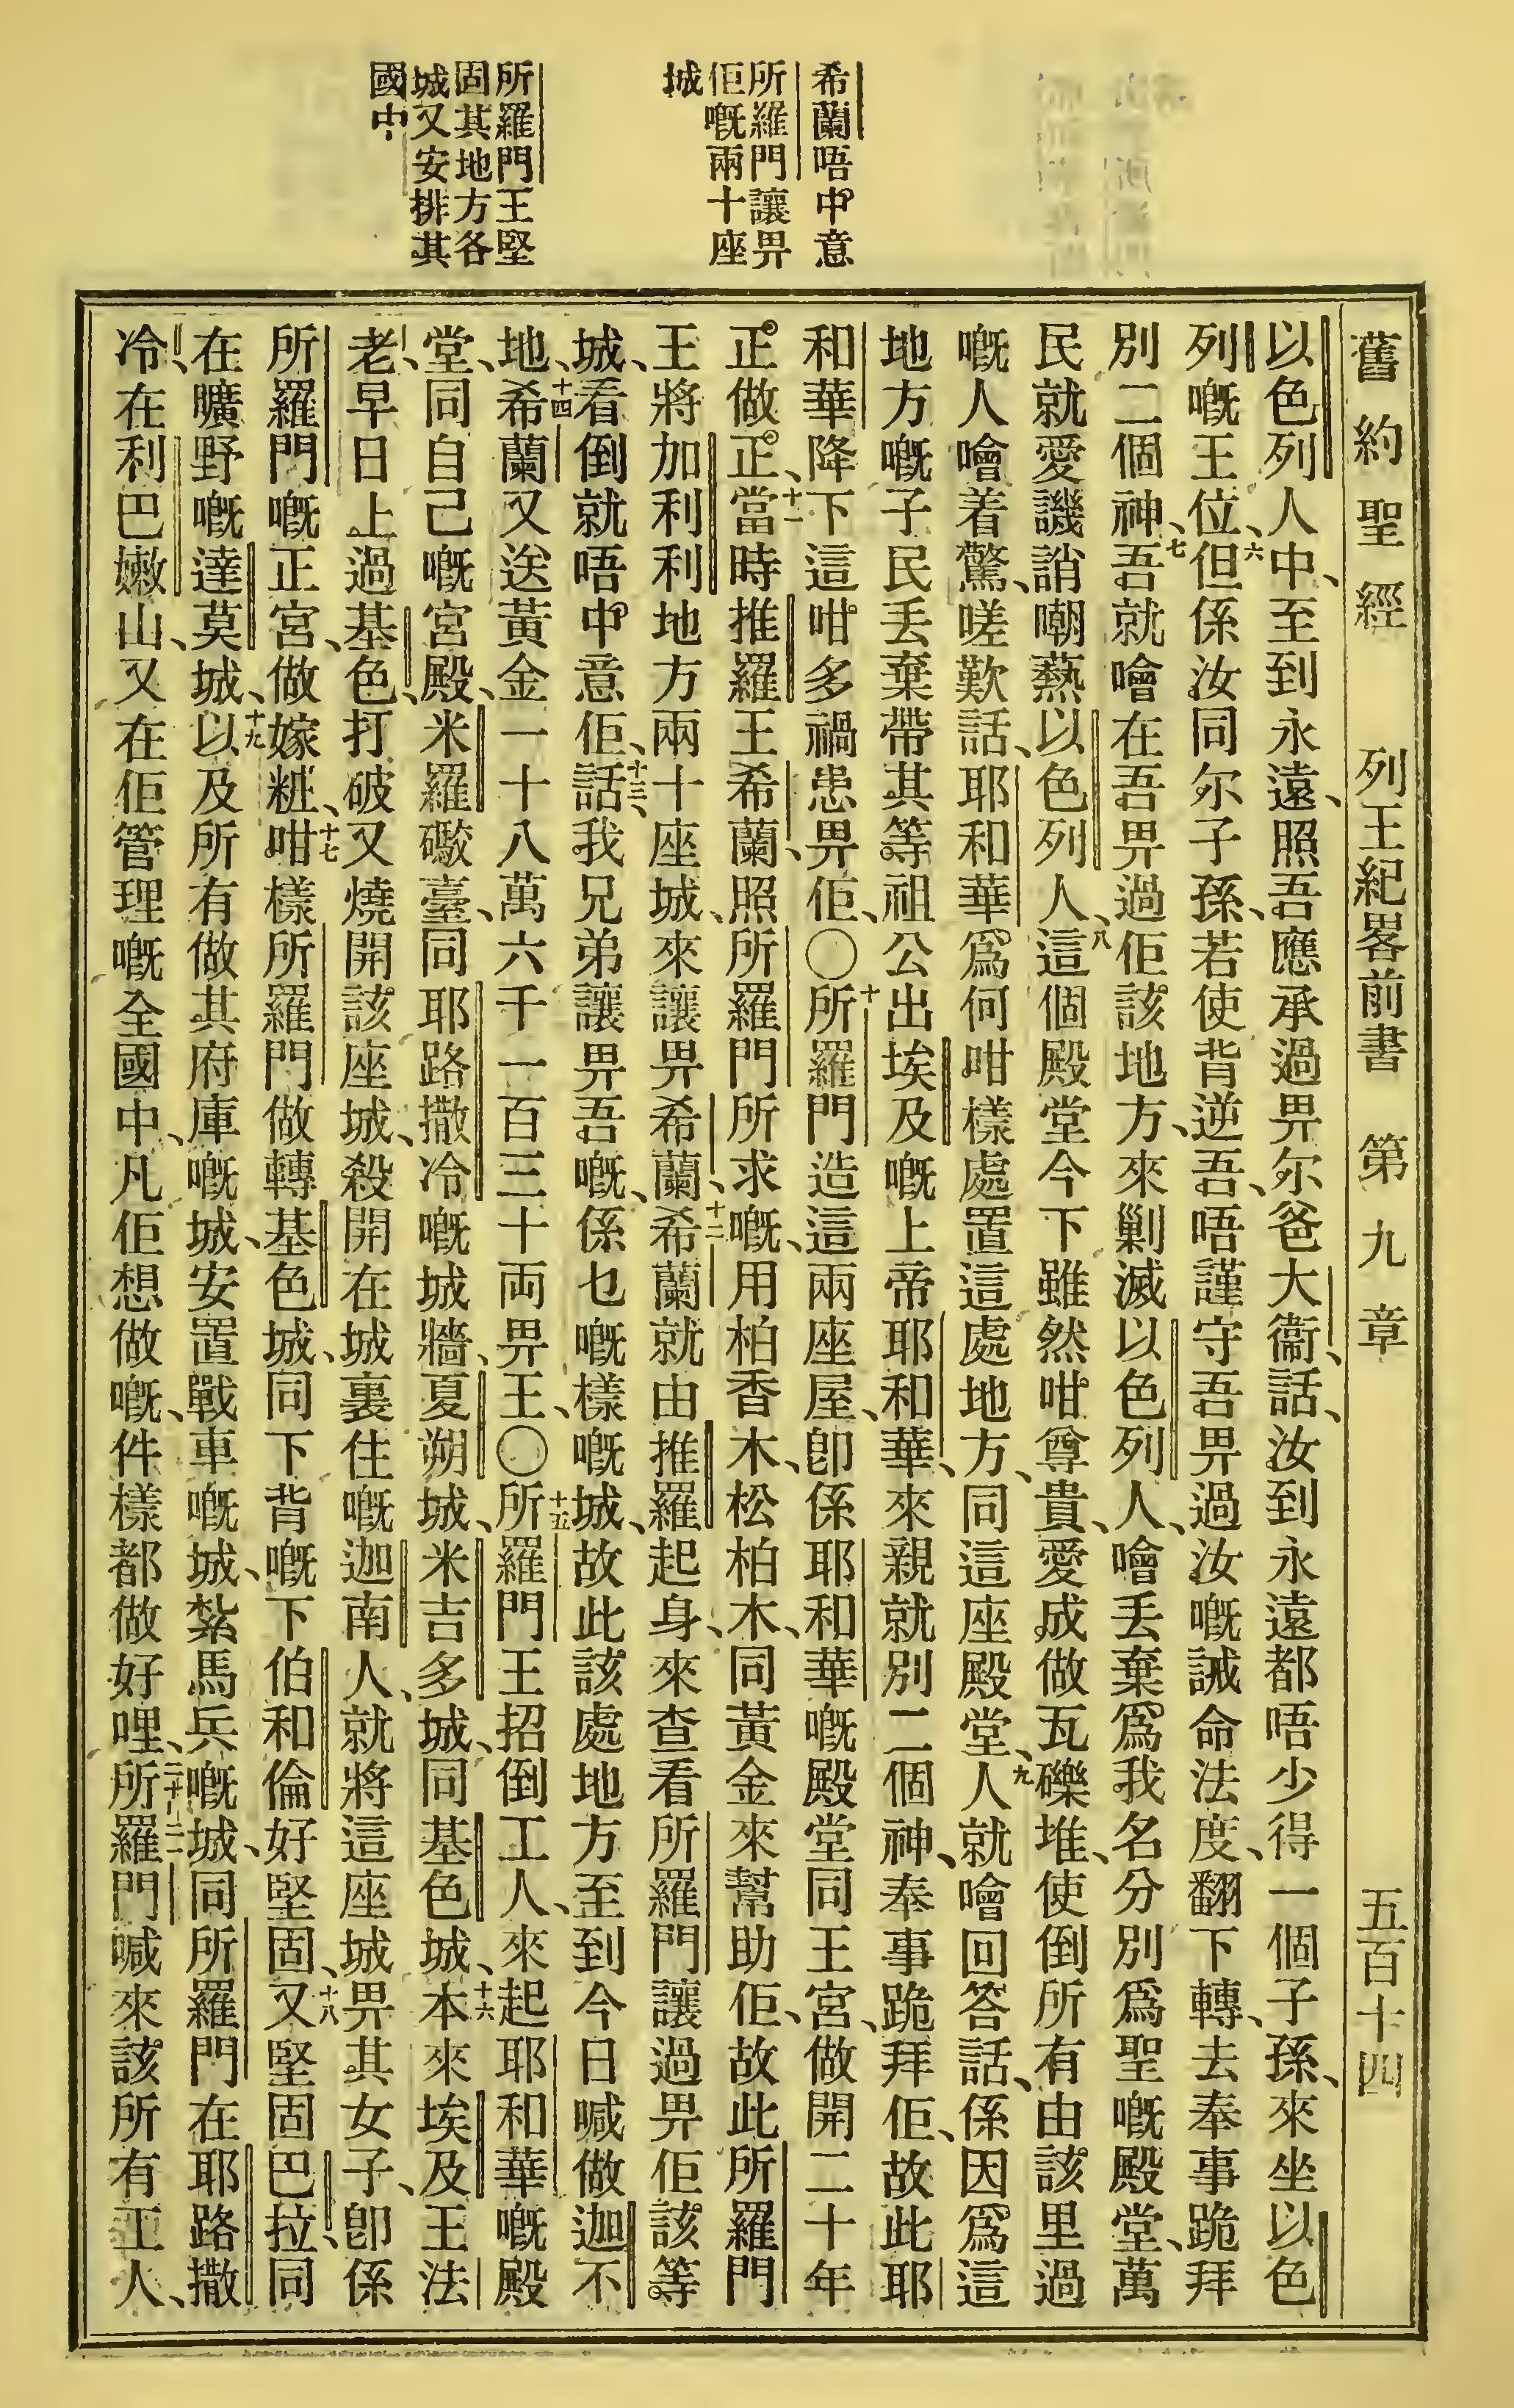 希蘭唔中意
所羅門讓畀
佢嘅兩十座
城
所羅門王堅
固其地方各
城又安排其
國中
舊約聖經 列王紀畧前書 第九章 五百十四
以色列人中、至到永遠、照吾應承過畀尔爸大衞、話、汝到永遠都唔少得一個子孫、來坐以色
列嘅王位、六但係汝同尔子孫、若使背逆吾、唔謹守吾畀過汝嘅誡命法度、翻下轉、去奉事跪拜
別二個神、七吾就噲在吾畀過佢該地方、來剿滅以色列人、噲丢棄爲我名分別爲聖嘅殿堂、萬
民就愛譏誚嘲𤍠以色列人、八這個殿堂今下雖然咁尊貴、愛成做瓦礫堆、使倒所有由該里過
嘅人噲着驚、嗟歎話、耶和華爲何咁樣處置這處地方、同這座殿堂、九人就噲回答話、係因爲這
地方嘅子民丢棄帶其等祖公出埃及嘅上帝耶和華、來親就別二個神、奉事跪拜佢、故此耶
和華降下這咁多禍患畀佢、〇十所羅門造這兩座屋、卽係耶和華嘅殿堂同王宮、做開二十年
正做正、十一當時推羅王希蘭、照所羅門所求嘅、用柏香木、松柏木、同黃金來幫助佢、故此所羅門
王將加利利地方兩十座城、來讓畀希蘭、十二希蘭就由推羅起身、來查看所羅門讓過畀佢該等
城、看倒就唔中意佢、十三、話我兄弟讓畀吾嘅、係乜嘅樣嘅城、故此該處地方至到今日喊做迦不
地、十四希蘭又送黃金一十八萬六千一百三十両畀王、〇十五所羅門王招倒工人、來起耶和華嘅殿
堂、同自己嘅宮殿、米羅礮臺、同耶路撒冷嘅城牆、夏朔城、米吉多城、同基色城、十六本來埃及王法
老、早日上過基色、打破又燒開該座城、殺開在城裏住嘅迦南人、就將這座城畀其女子、卽係
所羅門嘅正宮、做嫁粧、十七咁樣所羅門做轉基色城、同下背嘅下伯和倫好堅固、十八又堅固巴拉、同
在曠野嘅達莫城、十九以及所有做其府庫嘅城、安置戰車嘅城、紮馬兵嘅城、同所羅門在耶路撒
冷、在利巴嫩山、又在佢管理嘅全國中、凡佢想做嘅、件樣都做好哩、二十、二一所羅門喊來該所有工人、